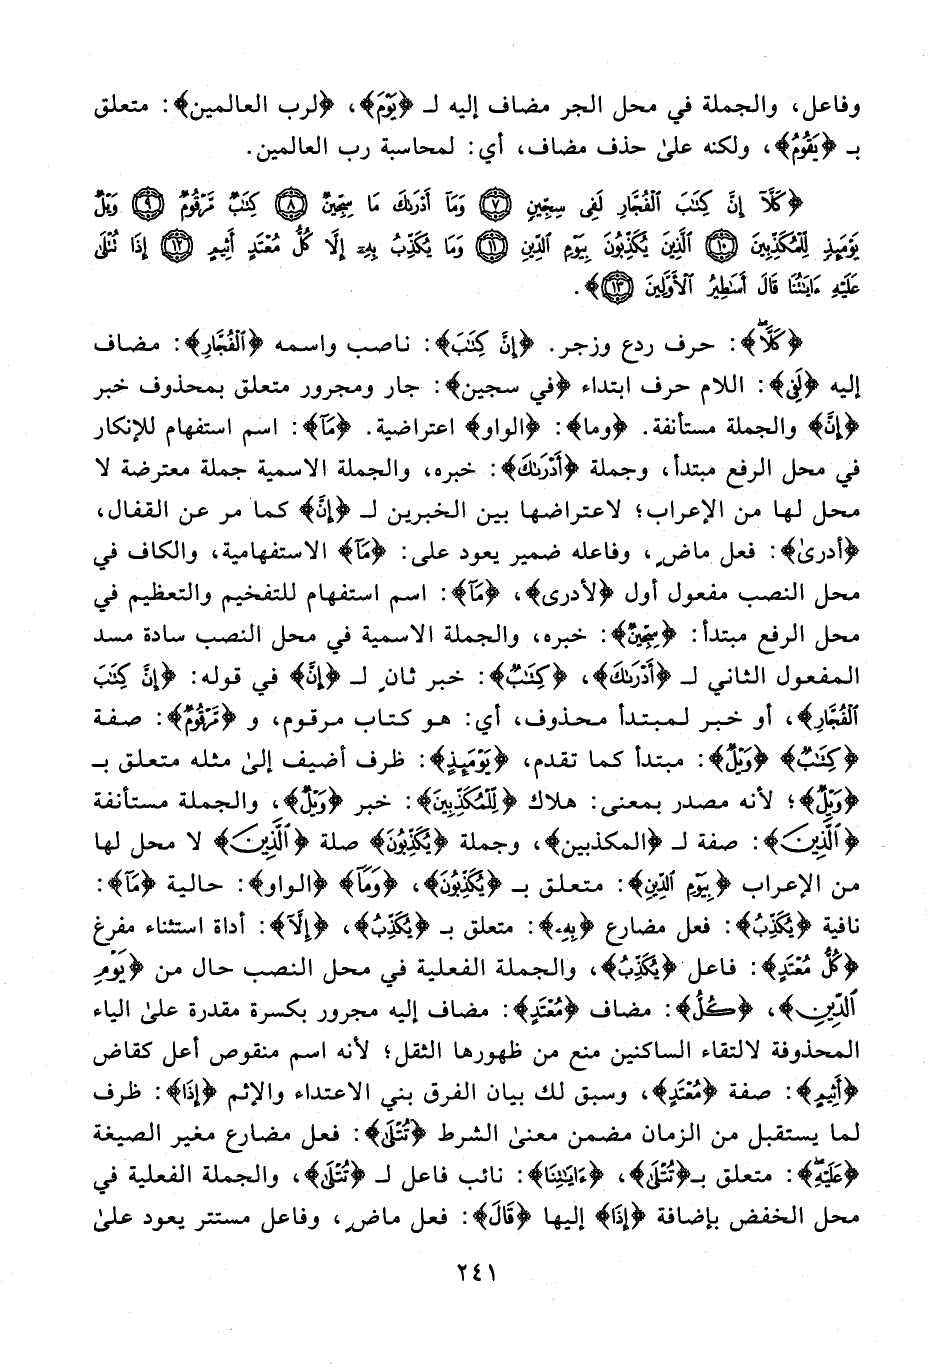 وفاعل، والجملة في محل الجر مضاف إليه لـ ﴿يَوْمَ﴾، ﴿لرب العالمين﴾: متعلق
بـ ﴿يَقُومُ﴾، ولكنه علىٰ حذف مضاف، أي: لمحاسبة رب العالمين.
﴿كَلَّآ إِنَّ كِتَٰبَ ٱلْفُجَّارِ لَفِى سِجِّينٍ ٧ وَمَآ أَدْرَىٰكَ مَا سِجِّينٌ ٨ كِتَٰبٌ مَّرْقُومٌ ٩ وَيْلٌ
يَوْمَئِذٍ لِّلْمُكَذِّبِينَ ١٠ ٱلَّذِينَ يُكَذِّبُونَ بِيَوْمِ ٱلدِّينِ ١١ وَمَا يُكَذِّبُ بِهِۦٓ إِلَّا كُلُّ مُعْتَدٍ أَثِيمٍ ١٢ إِذَا تُتْلَىٰ
عَلَيْهِ ءَايَٰتُنَا قَالَ أَسَٰطِيرُ ٱلْأَوَّلِينَ ١٣﴾.
﴿كَلَّاۖ﴾: حرف ردع وزجر. ﴿إِنَّ كِتَٰبَ﴾: ناصب واسمه ﴿ٱلْفُجَّارِ﴾: مضاف
إليه ﴿لَفِى﴾: اللام حرف ابتداء ﴿في سجين﴾: جار ومجرور متعلق بمحذوف خبر
﴿إِنَّ﴾ والجملة مستأنفة. ﴿وما﴾: ﴿الواو﴾ اعتراضية. ﴿مَآ﴾: اسم استفهام للإنكار
في محل الرفع مبتدأ، وجملة ﴿أَدْرَىٰكَ﴾: خبره، والجملة الاسمية جملة معترضة لا
محل لها من الإعراب؛ لاعتراضها بين الخبرين لـ ﴿إِنَّ﴾ كما مر عن القفال،
﴿أدرىٰ﴾: فعل ماضٍ، وفاعله ضمير يعود على: ﴿مَآ﴾ الاستفهامية، والكاف في
محل النصب مفعول أول ﴿لأدرى﴾، ﴿مَآ﴾: اسم استفهام للتفخيم والتعظيم في
محل الرفع مبتدأ: ﴿سِجِّينٌ﴾: خبره، والجملة الاسمية في محل النصب سادة مسد
المفعول الثاني لـ ﴿أَدْرَىٰكَ﴾، ﴿كِتَٰبٌ﴾: خبر ثانٍ لـ ﴿إِنَّ﴾ في قوله: ﴿إِنَّ كِتَٰبَ
ٱلْفُجَّارِ﴾، أو خبر لمبتدأ محذوف، أي: هو كتاب مرقوم، و ﴿مَّرْقُومٌ﴾: صفة
﴿كِتَٰبٌ﴾ ﴿وَيْلٌ﴾: مبتدأ كما تقدم، ﴿يَوْمَئِذٍ﴾: ظرف أضيف إلىٰ مثله متعلق بـ
﴿وَيْلٌ﴾؛ لأنه مصدر بمعنى: هلاك ﴿لِّلْمُكَذِّبِينَ﴾: خبر ﴿وَيْلٌ﴾، والجملة مستأنفة
﴿ٱلَّذِينَ﴾: صفة لـ ﴿المكذبين﴾، وجملة ﴿يُكَذِّبُونَ﴾ صلة ﴿ٱلَّذِينَ﴾ لا محل لها
من الإعراب ﴿بِيَوْمِ ٱلدِّينِ﴾: متعلق بـ ﴿يُكَذِّبُونَ﴾، ﴿وَمَآ﴾ ﴿الواو﴾: حالية ﴿مَآ﴾:
نافية ﴿يُكَذِّبُ﴾: فعل مضارع ﴿بِهِۦ﴾: متعلق بـ ﴿يُكَذِّبُ﴾، ﴿إِلَّآ﴾: أداة استثناء مفرغ
﴿كُلُّ مُعْتَدٍ﴾: فاعل ﴿يُكَذِّبُ﴾، والجملة الفعلية في محل النصب حال من ﴿يَوْمِ
ٱلدِّينِ﴾، ﴿كُلُّ﴾: مضاف ﴿مُعْتَدٍ﴾: مضاف إليه مجرور بكسرة مقدرة علىٰ الياء
المحذوفة لالتقاء الساكنين منع من ظهورها الثقل؛ لأنه اسم منقوص أعل كقاض
﴿أَثِيمٍ﴾: صفة ﴿مُعْتَدٍ﴾، وسبق لك بيان الفرق بني الاعتداء والإثم ﴿إِذَا﴾: ظرف
لما يستقبل من الزمان مضمن معنىٰ الشرط ﴿تُتْلَىٰ﴾: فعل مضارع مغير الصيغة
﴿عَلَيْهِۖ﴾: متعلق بـ﴿تُتْلَىٰ﴾، ﴿ءَايَٰتِنَا﴾: نائب فاعل لـ ﴿تُتْلَىٰ﴾، والجملة الفعلية في
محل الخفض بإضافة ﴿إِذَا﴾ إليها ﴿قَالَ﴾: فعل ماضٍ، وفاعل مستتر يعود علىٰ
٢٤١